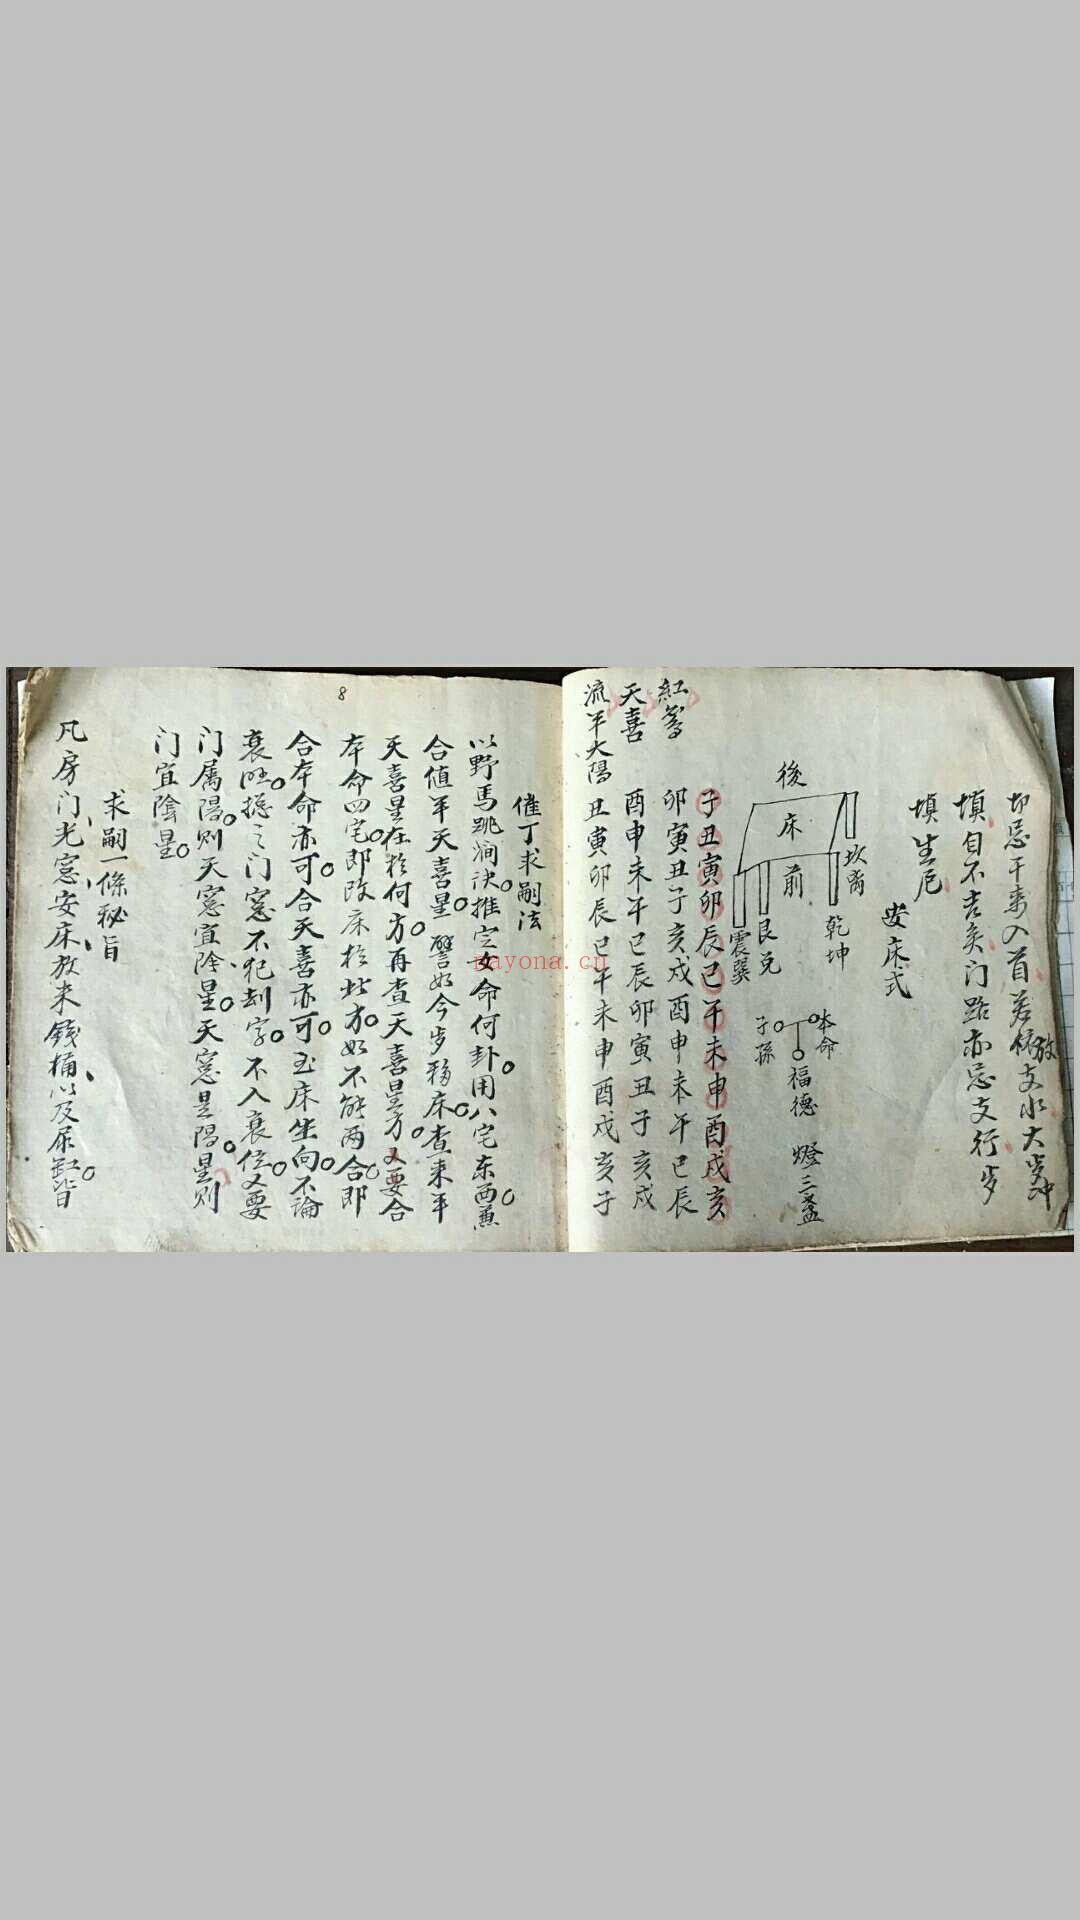 切忌干来入首若依放支水大岁冲
填自不吉矣门路亦忌支行步
填生尼
安床式
後
床
前
坎离
乾坤
艮兑
震巽
本命
子孫
福德
燈三盏
子丑寅卯辰巳午未申酉戌亥
紅鸾 卯寅丑子亥戌酉申未午巳辰
天喜 酉申未午巳辰卯寅丑子亥戌
流年太陽 丑寅卯辰巳午未申酉戌亥子
催丁求嗣法
以野馬跳澗诀推定女命何卦用八宅东西兼
合值年天喜星譬如今步移床查来年
天喜星在於何方再查天喜星方又要合
本命四宅即改床於此方如不能两合即
合本命亦可合天喜亦可至床坐向不論
衰旺揔之门窓不犯刦字不入衰位又要
门属陽则天窓宜陰星天窓是陽星则
门宜陰星
求嗣一條秘旨
凡房门光窓安床放米錢桶以及尿缸皆
8
nayona.cn